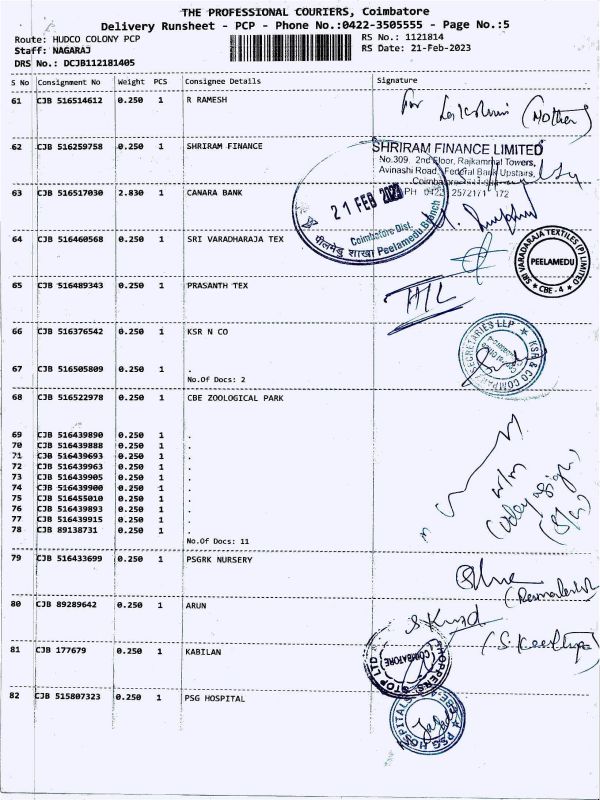 THE PROFESSIONAL COURIERS, Coimbatore
Delivery Runsheet - PCP - Phone No.:0422-3505555 - Page No.:5
Route: HUDCO COLONY PCP
RS No.: 1121814
Staff: NAGARAJ
RS Date: 21-Feb-2023
DRS No.: DCJB112181405
S No Consignment No Weight PCS Consignee Details Signature
61 CJB 516514612 0.250 1 R RAMESH
For Lakshmi (Mother)
62 CJB 516259758 0.250 1 SHRIRAM FINANCE
SHRIRAM FINANCE LIMITED
No.309, 2nd Floor, Rajkammal Towers,
Avinashi Road, Federal Bank Upstairs,
Coimbatore
PH 0422 2572171 172
63 CJB 516517030 2.830 1 CANARA BANK
21 FEB 2023
Coimbatore Dist.
पीलमेडु शाखा Peelamedu Branch
64 CJB 516460568 0.250 1 SRI VARADHARAJA TEX
SRI VARADARAJA TEXTILES (P) LIMITED
PEELAMEDU
★ CBE - 4 ★
65 CJB 516489343 0.250 1 PRASANTH TEX
66 CJB 516376542 0.250 1 KSR N CO
KSR & CO COMPANY SECRETARIES LLP
67 CJB 516505809 0.250 1 .
No.Of Docs: 2
68 CJB 516522978 0.250 1 CBE ZOOLOGICAL PARK
69 CJB 516439890 0.250 1 .
70 CJB 516439888 0.250 1 .
71 CJB 516439693 0.250 1 .
72 CJB 516439963 0.250 1 .
73 CJB 516439905 0.250 1 .
74 CJB 516439900 0.250 1 .
75 CJB 516455010 0.250 1 .
76 CJB 516439893 0.250 1 .
77 CJB 516439915 0.250 1 .
78 CJB 89138731 0.250 1 .
No.Of Docs: 11
79 CJB 516433699 0.250 1 PSGRK NURSERY
80 CJB 89289642 0.250 1 ARUN
81 CJB 177679 0.250 1 KABILAN
SHOPPERS STOP LTD
(COIMBATORE)
82 CJB 515807323 0.250 1 PSG HOSPITAL
PSG HOSPITALS